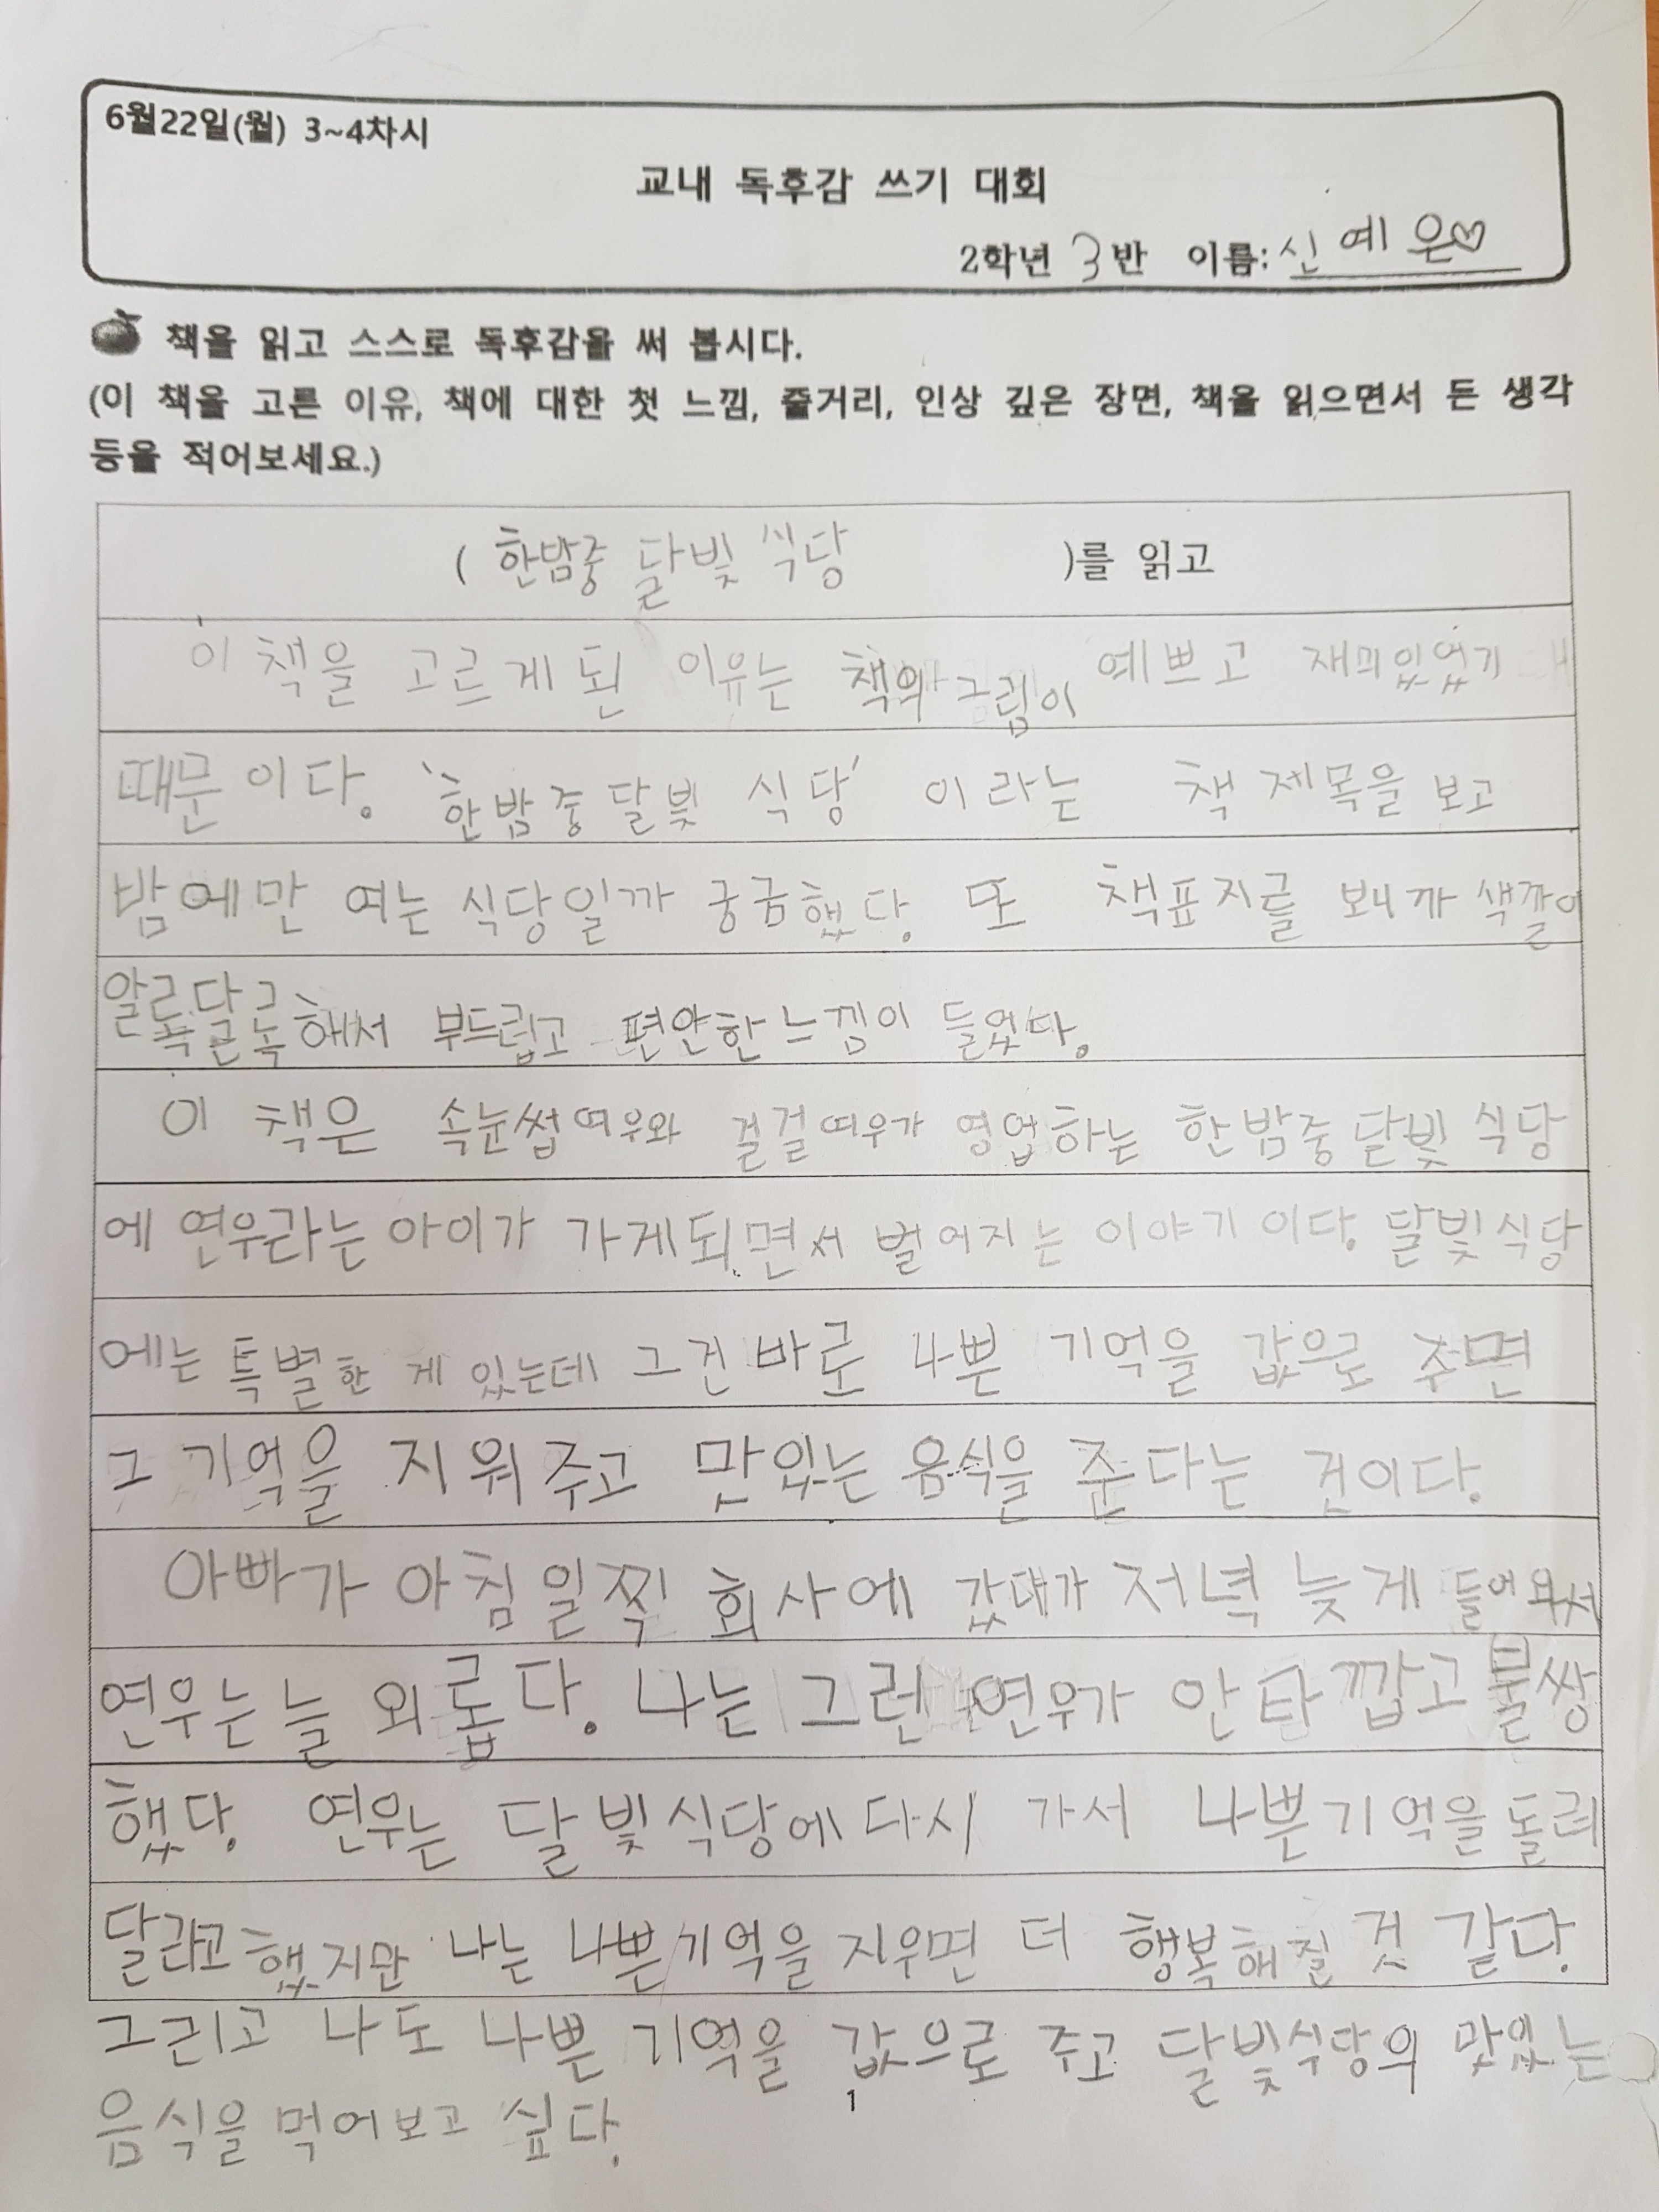 6월22일(월) 3~4차시
교내 독후감 쓰기 대회
2학년 3반 이름: 신예은♡
책을 읽고 스스로 독후감을 써 봅시다.
(이 책을 고른 이유, 책에 대한 첫 느낌, 줄거리, 인상 깊은 장면, 책을 읽으면서 든 생각
등을 적어보세요.)
( 한밤중 달빛 식당 )를 읽고
이 책을 고르게 된 이유는 책의 그림이 예쁘고 재미있었기
때문이다. '한밤중 달빛 식당' 이라는 책 제목을 보고
밤에만 여는 식당일까 궁금했다. 또 책표지를 보니까 색깔이
알록달록해서 부드럽고 편안한 느낌이 들었다.
이 책은 속눈썹여우와 걸걸여우가 영업하는 한밤중 달빛 식당
에 연우라는 아이가 가게되면서 벌어지는 이야기 이다. 달빛 식당
에는 특별한 게 있는데 그건 바로 나쁜 기억을 값으로 주면
그 기억을 지워주고 맛있는 음식을 준다는 것이다.
아빠가 아침 일찍 회사에 갔다가 저녁 늦게 들어와서
연우는 늘 외롭다. 나는 그런 연우가 안타깝고 불쌍
했다. 연우는 달빛식당에 다시 가서 나쁜 기억을 돌려
달라고 했지만 나는 나쁜기억을 지우면 더 행복해질 것 같다.
그리고 나도 나쁜 기억을 값으로 주고 달빛식당의 맛있는
음식을 먹어보고 싶다.
1